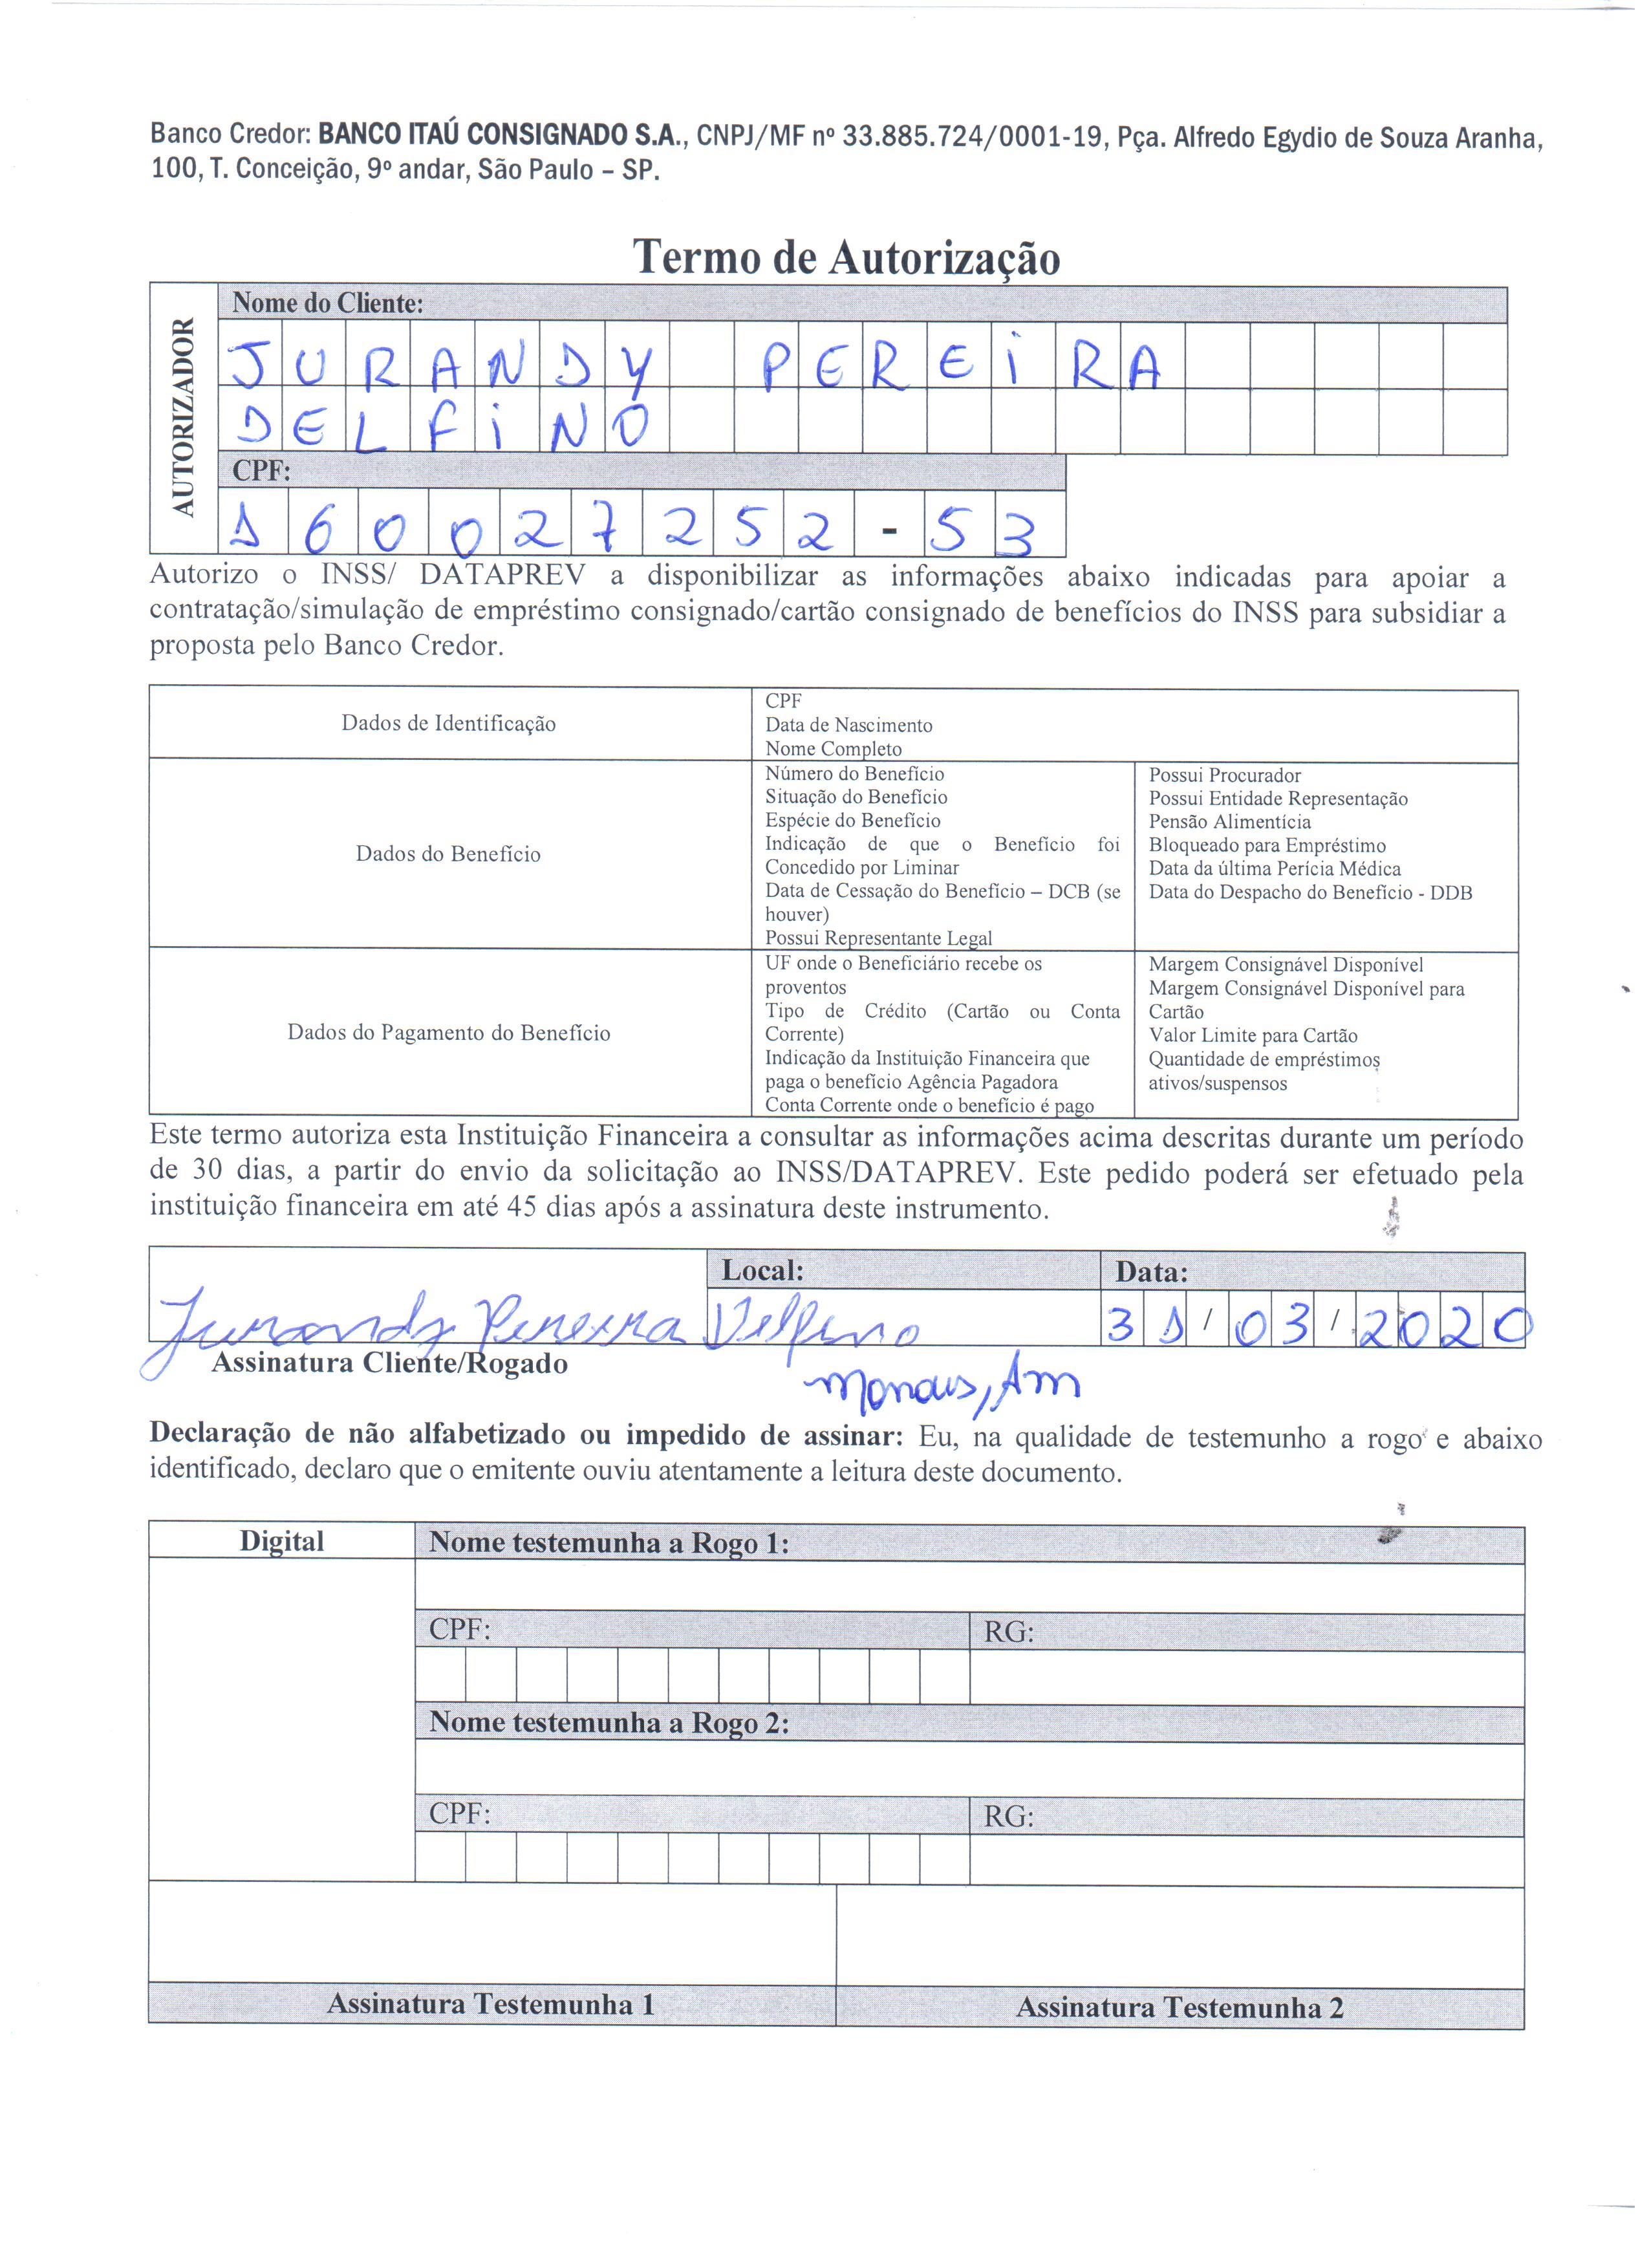 Banco Credor: BANCO ITAÚ CONSIGNADO S.A., CNPJ/MF nº 33.885.724/0001-19, Pça. Alfredo Egydio de Souza Aranha,
100, T. Conceição, 9º andar, São Paulo – SP.
Termo de Autorização
AUTORIZADOR
Nome do Cliente:
JURANDY PEREIRA
DELFINO
CPF:
160027252-53
Autorizo o INSS/ DATAPREV a disponibilizar as informações abaixo indicadas para apoiar a
contratação/simulação de empréstimo consignado/cartão consignado de benefícios do INSS para subsidiar a
proposta pelo Banco Credor.
Dados de Identificação
CPF
Data de Nascimento
Nome Completo
Dados do Benefício
Número do Benefício
Situação do Benefício
Espécie do Benefício
Indicação de que o Benefício foi
Concedido por Liminar
Data de Cessação do Benefício – DCB (se
houver)
Possui Representante Legal
Possui Procurador
Possui Entidade Representação
Pensão Alimentícia
Bloqueado para Empréstimo
Data da última Perícia Médica
Data do Despacho do Benefício - DDB
Dados do Pagamento do Benefício
UF onde o Beneficiário recebe os
proventos
Tipo de Crédito (Cartão ou Conta
Corrente)
Indicação da Instituição Financeira que
paga o benefício Agência Pagadora
Conta Corrente onde o benefício é pago
Margem Consignável Disponível
Margem Consignável Disponível para
Cartão
Valor Limite para Cartão
Quantidade de empréstimos
ativos/suspensos
Este termo autoriza esta Instituição Financeira a consultar as informações acima descritas durante um período
de 30 dias, a partir do envio da solicitação ao INSS/DATAPREV. Este pedido poderá ser efetuado pela
instituição financeira em até 45 dias após a assinatura deste instrumento.
Local:
Data:
Jurandy Pereira Delfino
31/03/2020
Assinatura Cliente/Rogado
Manaus, Am
Declaração de não alfabetizado ou impedido de assinar: Eu, na qualidade de testemunho a rogo e abaixo
identificado, declaro que o emitente ouviu atentamente a leitura deste documento.
Digital
Nome testemunha a Rogo 1:
CPF:
RG:
Nome testemunha a Rogo 2:
CPF:
RG:
Assinatura Testemunha 1
Assinatura Testemunha 2